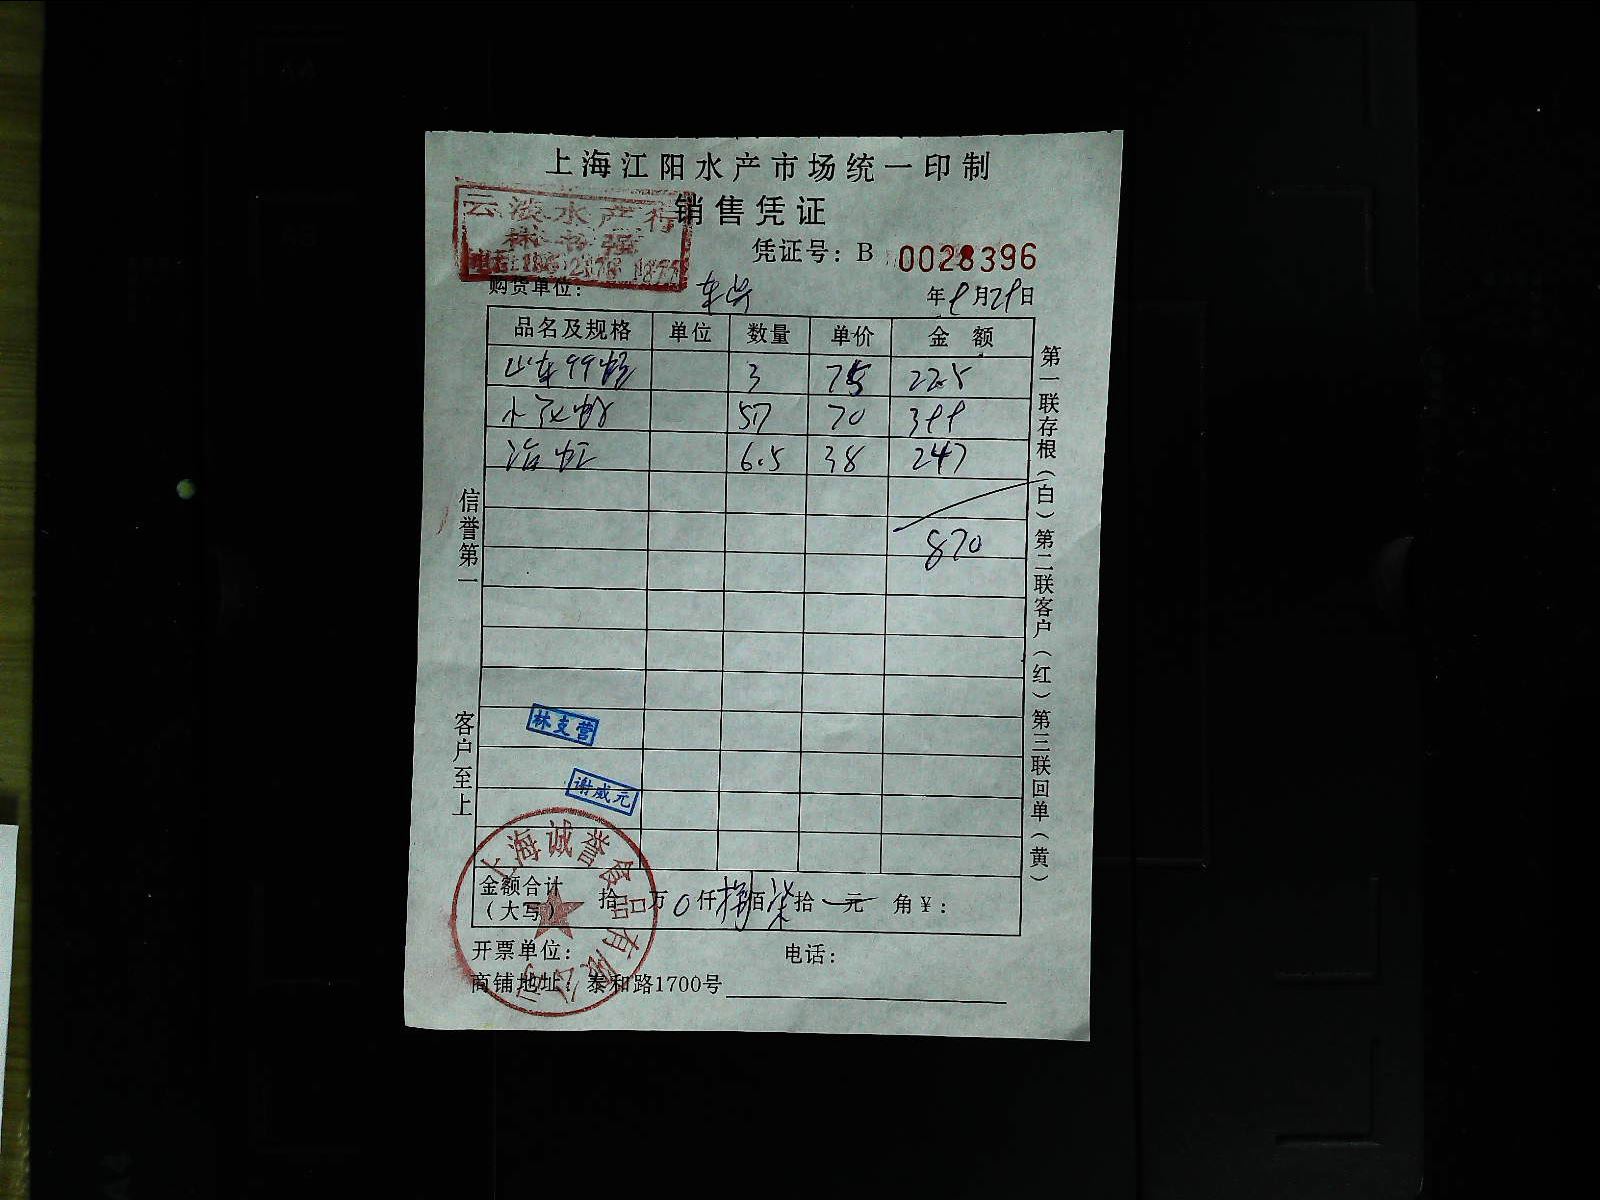 上海江阳水产市场统一印制
销售凭证
云淡水产行
凭证号：B 0028396
购货单位：
年 月 日
品名及规格 单位 数量 单价 金额
3 75 225
57 70 399
6.5 38 247
870
信誉第一
客户至上
第一联存根（白）第二联客户（红）第三联回单（黄）
林支营
谢成元
上海诚誉食品有限公司
金额合计（大写） 拾 万 0 仟 捌 佰 柒 拾 元 角 ￥：
开票单位： 电话：
商铺地址：泰和路1700号